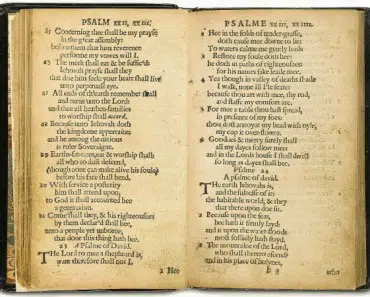 PSALM XXII, XXIII.
25 Concerning thee shall be my prayse
in the great assembly:
before them that him reverence
performe my vowes will I.
26 The meek shall eat & be suffic'd:
Iehovah praysh shall they
that doe him seek: your heart shall live
unto perpetuall aye.
27 All ends of th'earth remember shall
and turne unto the Lord:
and thee all heathen-families
to worship shall
28 Because unto Iehovah doth
the kingdome appertaine:
and he among the nations
is ruler Soveraigne.
29 Earths-fat-ones, eat & worship shall:
all who to dust descend,
(though none can make alive his soule)
before his face shall bend.
30 With service a posterity
him shall attend upon;
to God it shall accounted bee
a generation.
31 Come shall they, & his righteousnes
by them declar'd shall bee,
unto a people yet unborne,
that done this thing hath hee.
23 A Psalme of David.
THe Lord to mee a shepheard is,
want therefore shall not I.
2 Hee
PSALME XXIII, XXIIII.
2 Hee in the folds of tender-grasse,
doth cause mee downe to lie:
To waters calme me gently leads
3 Restore my soule doth hee:
he doth in paths of righteousnes
for his names sake leade mee.
4 Yea though in valley of deaths shade
I walk, none ill I'le feare:
because thou art with mee, thy rod,
and staffe my comfort are.
5 For mee a table thou hast spread,
in presence of my foes:
thou dost annoynt my head with oyle,
my cup it over-flowes.
6 Goodnes & mercy surely shall
all my dayes follow mee:
and in the Lords house I shall dwell
so long as dayes shall bee.
Psalme 24
A psalme of david.
THe earth Iehovahs is,
and the fulnesse of it:
the habitable world, & they
that there upon doe sit.
2 Because upon the seas,
hee hath it firmly layd:
and it upon the water-floods
most sollidly hath stayd.
3 The mountaine of the Lord,
who shall thereto ascend?
and in his place of holynes,
who